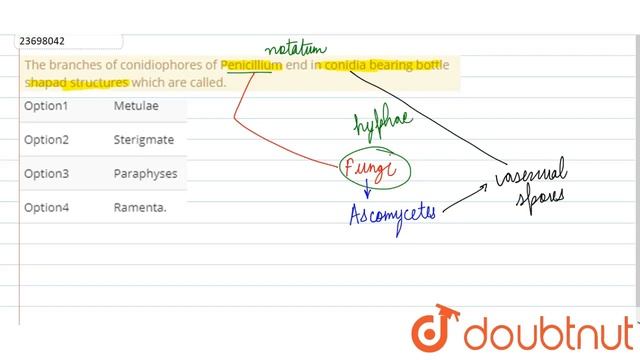 23698042
notatum
The branches of conidiophores of Penicillium end in conidia bearing bottle
shapad structures which are called.
Option1 Metulae
hyphae
Option2 Sterigmate
Fungi
Option3 Paraphyses
asexual
spores
Option4 Ramenta.
Ascomycetes
doubtnut